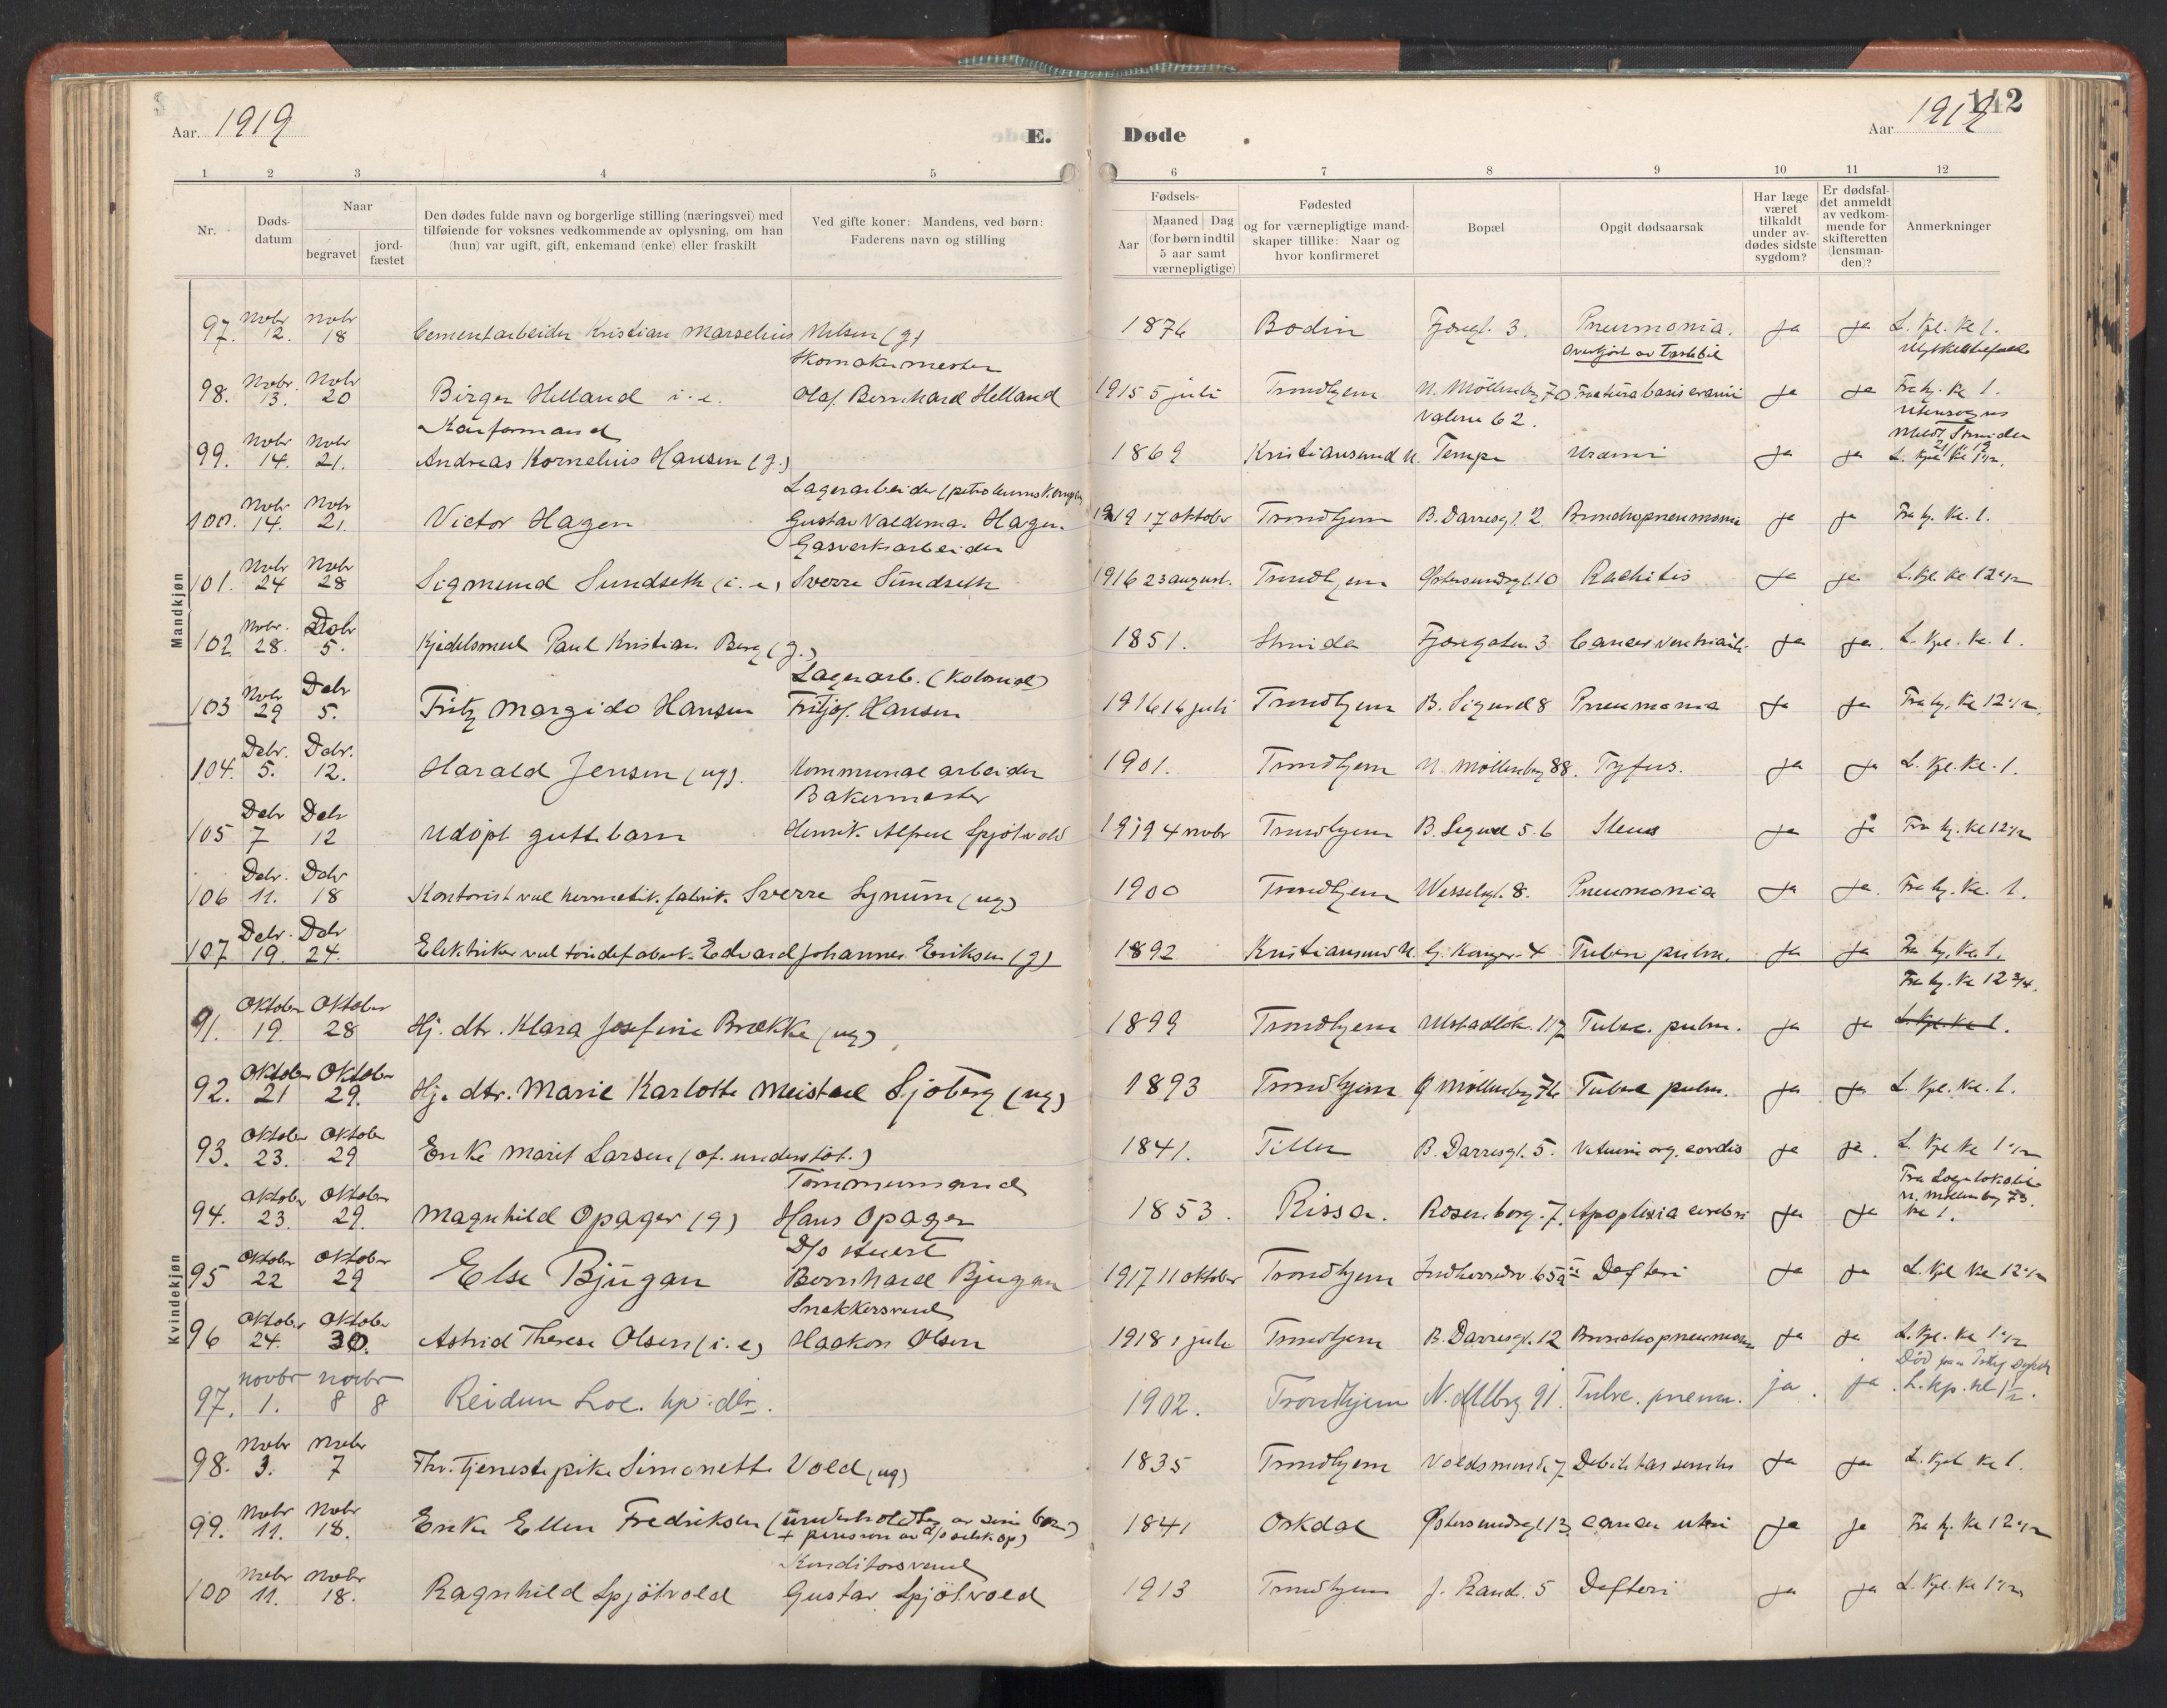 Aar 1919
E.
Døde
Aar 1919
112
1 2 3 4 5 6 7 8 9 10 11 12
Nr.
Døds-
datum
Naar
begravet
jord-
fæstet
Den dødes fulde navn og borgerlige stilling (næringsvei) med
tilføiende for voksnes vedkommende av oplysning, om han
(hun) var ugift, gift, enkemand (enke) eller fraskilt
Ved gifte koner: Mandens, ved børn:
Faderens navn og stilling
Fødsels-
Aar
Maaned Dag
(for børn indtil
5 aar samt
værnepligtige)
Fødested
og for værnepligtige mand-
skaper tillike: Naar og
hvor konfirmeret
Bopæl
Opgit dødsaarsak
Har læge
været
tilkaldt
under av-
dødes sidste
sygdom?
Er dødsfal-
det anmeldt
av vedkom-
mende for
skifteretten
(lensman-
den)?
Anmerkninger
Mandkjøn
97. Novbr 12. Novbr 18 Cementarbeider Kristian Marselius Nilsen (g) 1876 Bodin Fjøsgt. 3. Pneumonia. ja ja L. Kpl. Kl 1.
Skomakermester
Overkjørt av lastebil
Ulykkestilfælde
98. Novbr. 13. Novbr 20 Birger Helland i. e. Olaf Bernhard Helland 1915 5 juli Trondhjem N. Møllenbg 70 Fractura basis cranii ja ja Fra hj. Kl 1.
Karformand
Valene 62.
Utensogns
Meldt Strinden
99. Novbr 14. Novbr 21. Andreas Kornelius Hansen (g.) 1869 Kristiansund N. Tempe Uræmi ja ja L. Kpl. Kl 1 1/2.
Lagerarbeider (petroleumskomp)
100. Novbr 14. Novbr 21. Victor Hagen Gustav Valdemar Hagen 1919 17 oktobr Trondhjem B. Darresgt. 2 Bronchopneumoni ja ja Fra hj. Kl. 1.
Gasverksarbeider
101. Novbr 24 Novbr 28 Sigmund Sundseth (i. e) Sverre Sundseth 1916 23 august. Trondhjem Østersundsgt. 10 Rachitis ja ja L. Kpl. Kl 12 1/2
102 Novbr. 28. Debr 5. Kjedelsmed Paul Kristian Berg (g.) 1851. Strinda Fjøsegaten 3 Cancer ventriculi ja ja. L. Kpl. Kl. 1.
Lagerarb. (Kolonial)
103 Novbr 29 Debr 5. Fritz Margido Hansen Fritjof Hansen 1916 16 juli Trondhjem B. Sigurd 8 Pneumonia ja ja Fra hj. Kl 12 1/2.
104. Debr. 5. Debr. 12. Harald Jensen (ug). Kommunal arbeider 1901. Trondhjem N. Møllenbg 88. Tyfus. ja ja L. Kpl. Kl. 1.
Bakermester
105 Debr 7 Debr 12 Udøpt guttebarn Henrik Alfred Spjøtvold 1919 4 novbr Trondhjem B. Sigurd 5. 6 Ileus ja ja Fra hj. Kl 12 1/2
106 Debr. 11. Debr 18 Kontorist ved hermetik.fabrik. Sverre Lynum (ug) 1900 Trondhjem Wesselsgt. 8. Pneumonia ja ja. Fra hj. Kl. 1.
107 Debr. 19. Debr 24. Elektriker ved tøndefabrik. Edvard Johannes Eriksen (g) 1892 Kristiansund N. G. Konger. 4 Tuberc pulm. ja ja Fra hj. Kl. 1.
Kvindekjøn
Fra hj. Kl 12 3/4.
91. Oktober 19. Oktober 28 Hj. dtr. Klara Josefine Brække (ug) 1899 Trondhjem Ulstadløk. 117 Tuberc. pulm. ja ja L. Kpl. Kl 1.
92. Oktober 21 Oktober 29. Hj. dtr. Marie Karlotte Meistad Sjøberg (ug) 1893 Trondhjem Ø Møllenbg 76 Tuberc pulm. ja ja L. Kpl. Kl. 1.
93. Oktober 23. Oktober 29 Enke Marit Larsen (of. understøt.) 1841. Tiller B. Darresgt. 5. Vitium org. cordis ja ja. L. Kpl Kl 1 1/2
Tømmermand
Fra Logelokalet
N. Møllenbg 73.
94. Oktober 23. Oktober 29. Magnhild Opager (g) Hans Opager 1853. Rissa. Rosenborg. 7. Apoplexia cerebri ja ja Kl 1.
D/o stuert
95 Oktober 22 Oktober 29 Else Bjugan Bernhard Bjugan 1917 11 oktober Trondhjem Indherredsv. 65a Difteri ja ja L. Kpl Kl 12 1/2
Snekkersvend
96 Oktober 24. Oktober 30. Astrid Therese Olsen (i. e) Haakon Olsen 1918 1 juli Trondhjem B. Darresgt. 12 Bronchopneumoni ja ja L. Kpl. Kl 1 1/2
97. novbr 1. novbr 8 8 Reidun Loe. hj. dtr. 1902. Trondhjem N. Møllbrg 91. Tuberc. pneum. ja. ja. L. kp. kl 1 1/2.
98. Novbr 3. Novbr 7 Fhv. Tjenestepike Simonette Vold (ug) 1835 Trondhjem Voldsminde 7 Debilitas senilis ja ja L. Kpl Kl 1.
99. Novbr 11. Novbr 18. Enke Ellen Fredriksen (underholdtes av sine børn)
+ pension av d/s selskap)
1841 Orkdal Østersundsgt 13 cancer uteri ja ja Fra hj. Kl 12 1/2
Konditorsvend
100 Novbr 11. Novbr 18. Ragnhild Spjøtvold Gustav Spjøtvold 1913 Trondhjem J. Rand. 5 Difteri ja ja L. Kpl. Kl 1 1/2